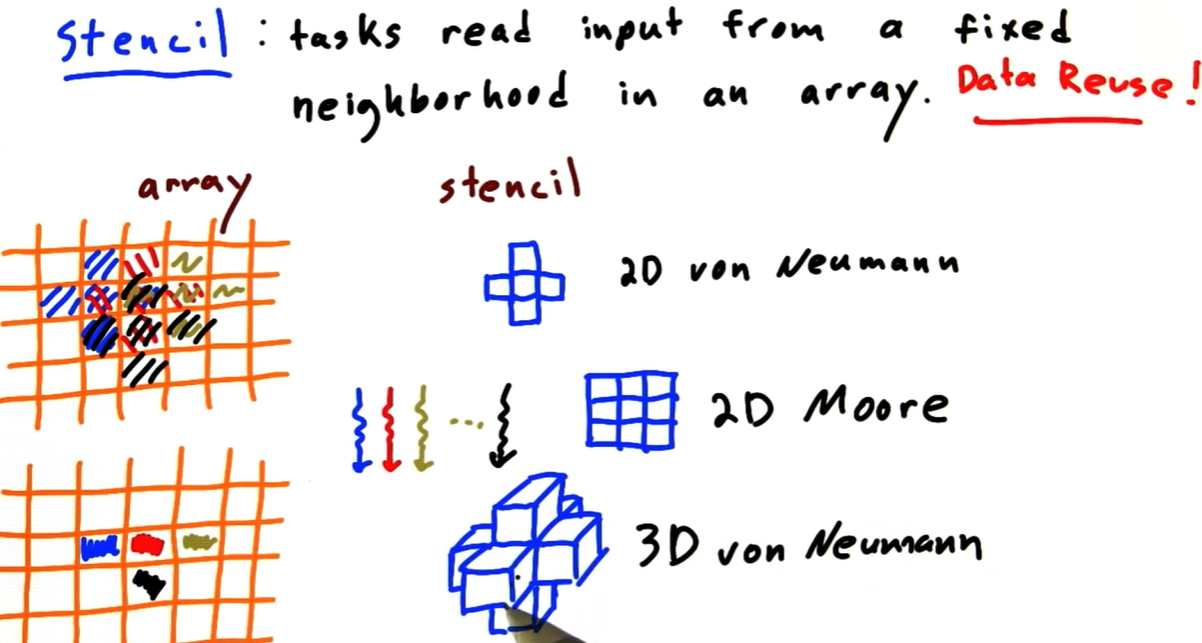 Stencil: tasks read input from a fixed
neighborhood in an array. Data Reuse!
array
stencil
2D von Neumann
2D Moore
3D von Neumann